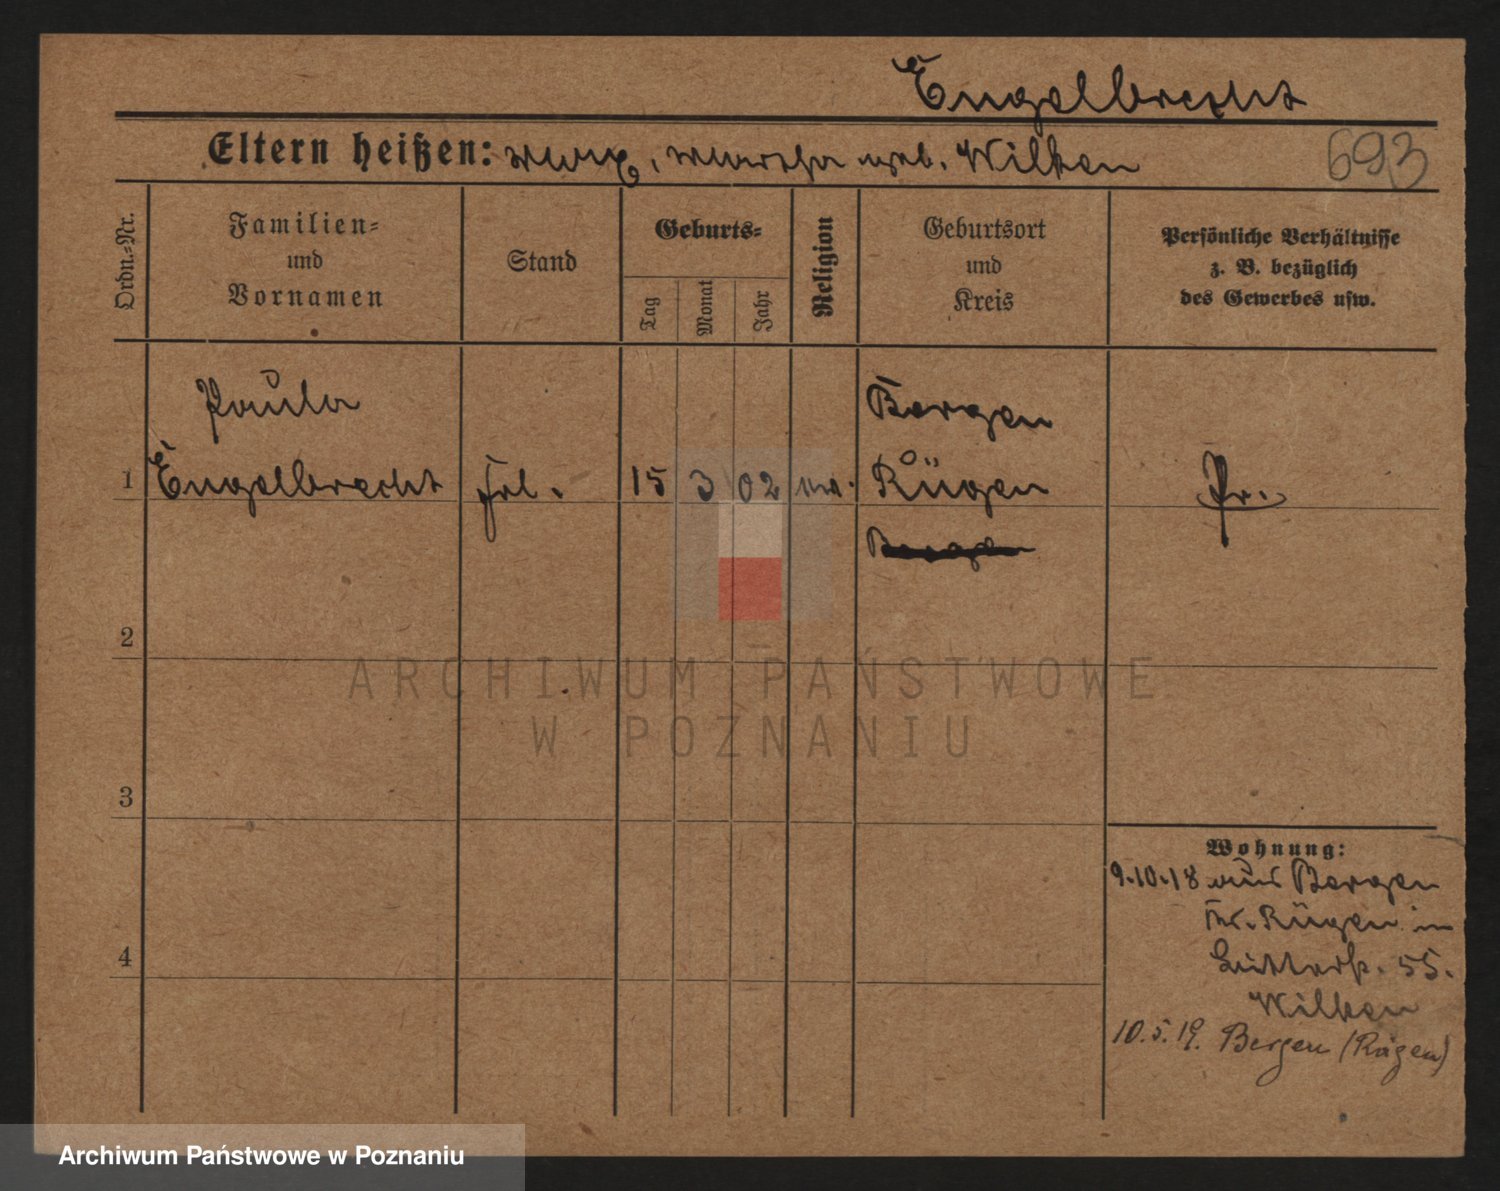 Engelbrecht
Eltern heißen: Max, Martha geb. Wilken
693
Ordn.-Nr.
Familien-
und
Vornamen
Stand
Geburts-
Tag
Monat
Jahr
Religion
Geburtsort
und
Kreis
Persönliche Verhältnisse
z. B. bezüglich
des Gewerbes usw.
Paula
Engelbrecht
1
Frl.
15
3
02
ev.
Bergen
Rügen
Pr.
2
3
4
Wohnung:
9.10.18 aus Bergen
Kr. Rügen in
55.
Wilken
10.5.19. Bergen (Rügen)
ARCHIWUM PAŃSTWOWE
W POZNANIU
Archiwum Państwowe w Poznaniu